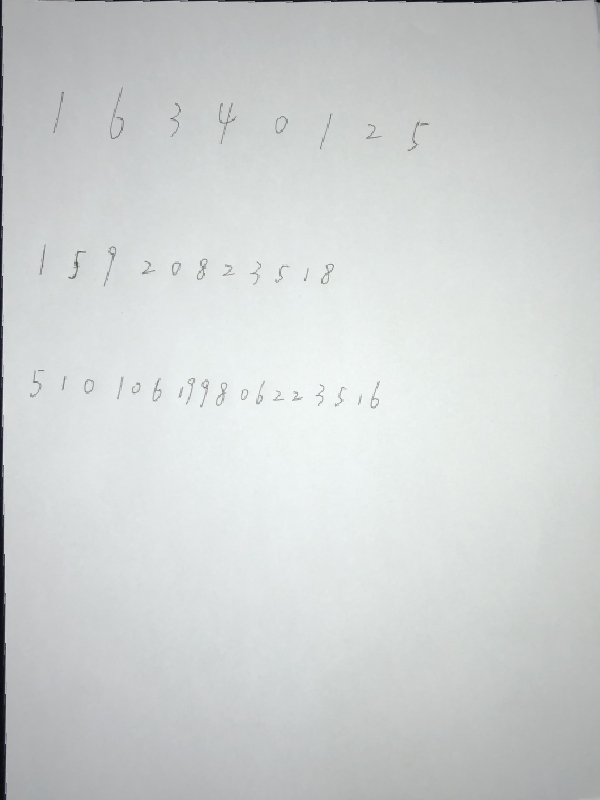 16340125
15920823518
510106199806223516